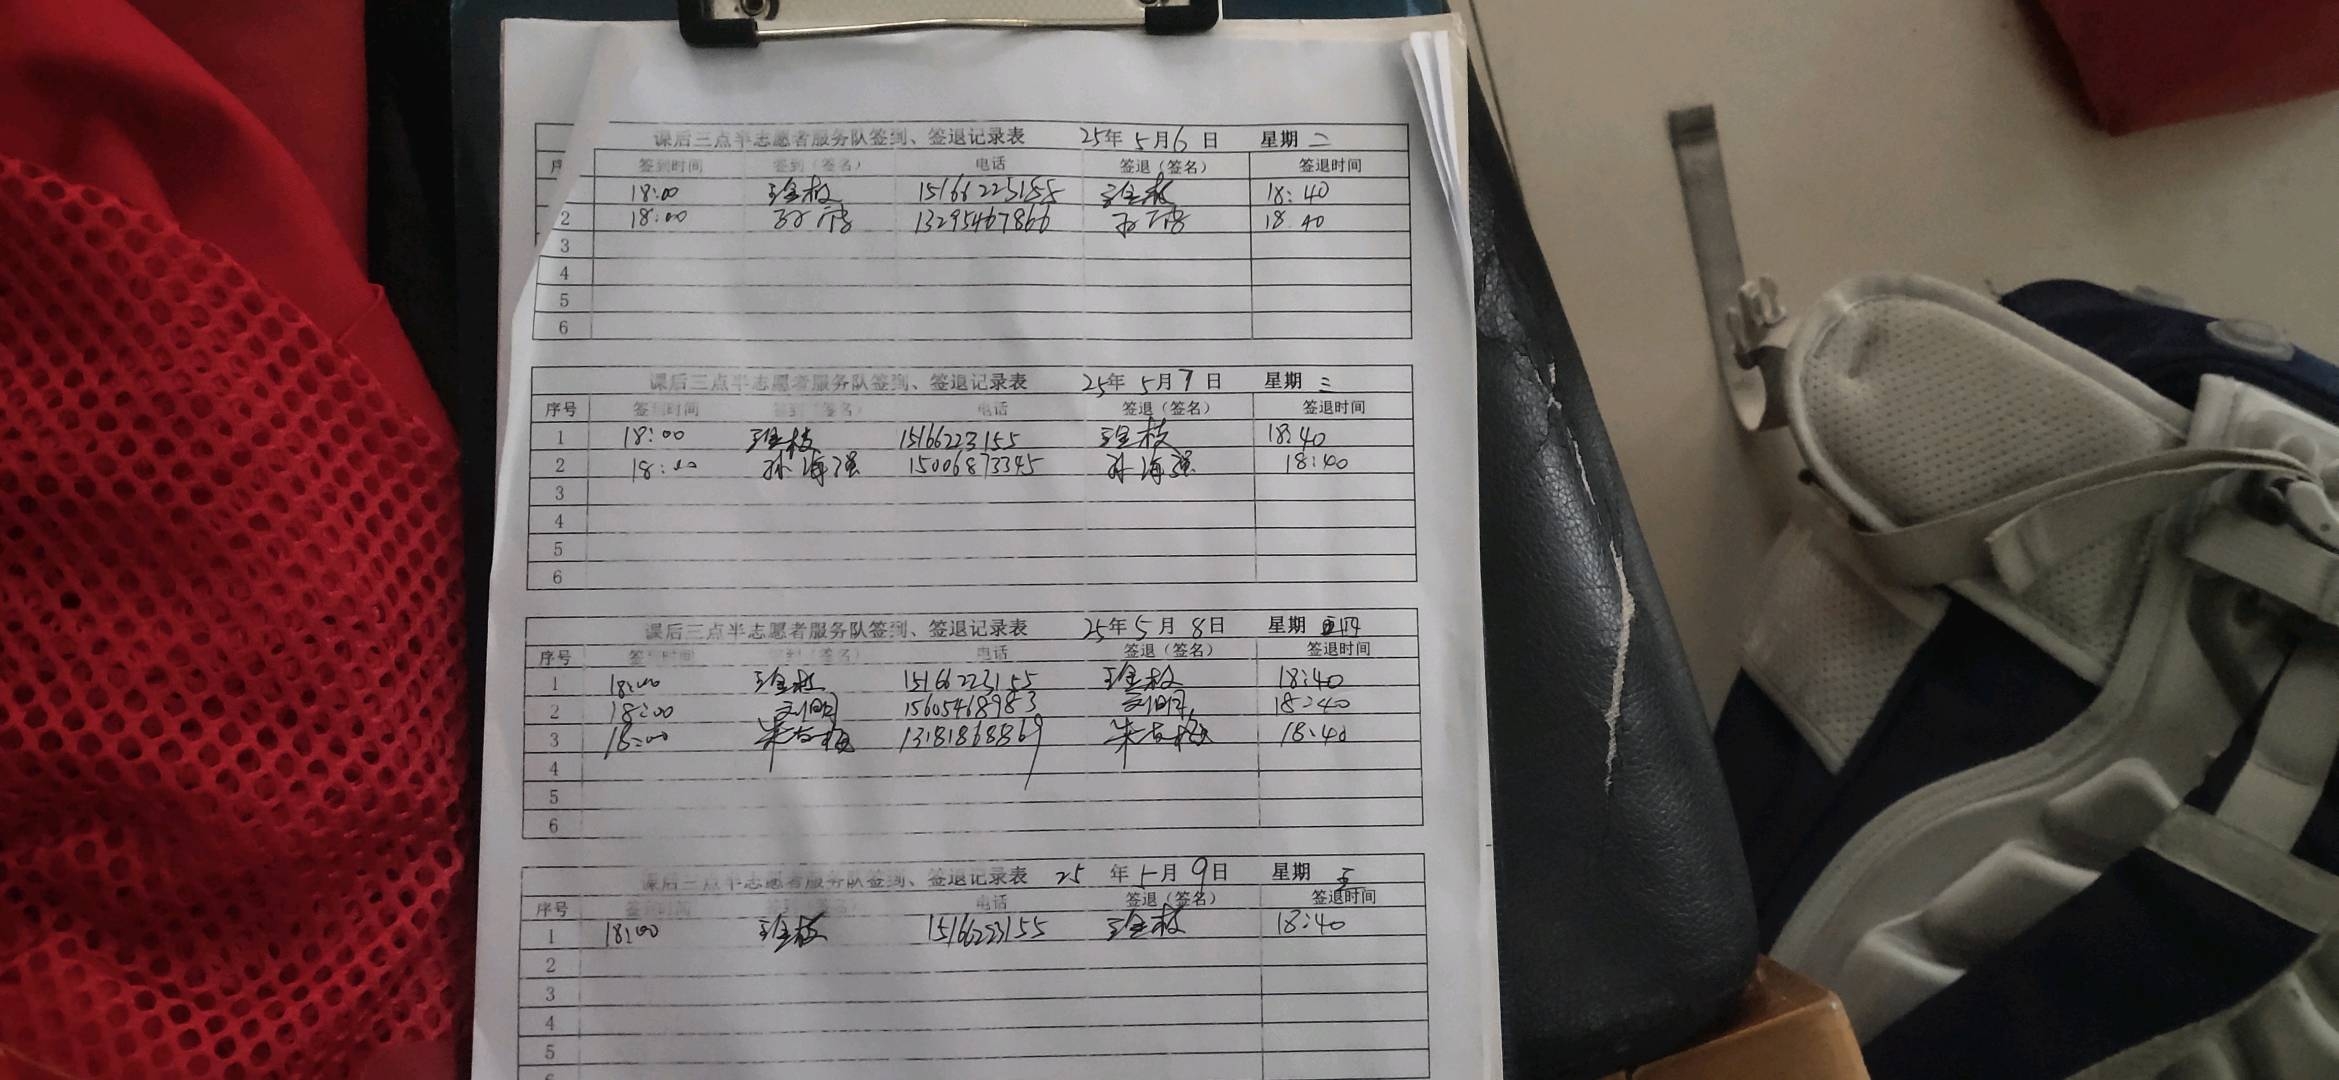 课后三点半志愿者服务队签到、签退记录表 25年5月6日 星期二
序 签到时间 签到（签名） 电话 签退（签名） 签退时间
18:00 18:40
2 18:00 13295467866 18:40
3
4
5
6
课后三点半志愿者服务队签到、签退记录表 25年5月7日 星期三
序号 签到时间 签到（签名） 电话 签退（签名） 签退时间
1 18:00 王金枝 15166223155 王金枝 18:40
2 18:00 孙海强 15006873345 孙海强 18:40
3
4
5
6
课后三点半志愿者服务队签到、签退记录表 25年5月8日 星期四
序号 签到时间 签到（签名） 电话 签退（签名） 签退时间
1 18:00 王金枝 15166223155 王金枝 18:40
2 18:00 15605468983 18:40
3 18:00 13181868869 18:40
4
5
6
课后三点半志愿者服务队签到、签退记录表 25年5月9日 星期五
序号 签到时间 签到（签名） 电话 签退（签名） 签退时间
1 18:00 王金枝 15166223155 王金枝 18:40
2
3
4
5